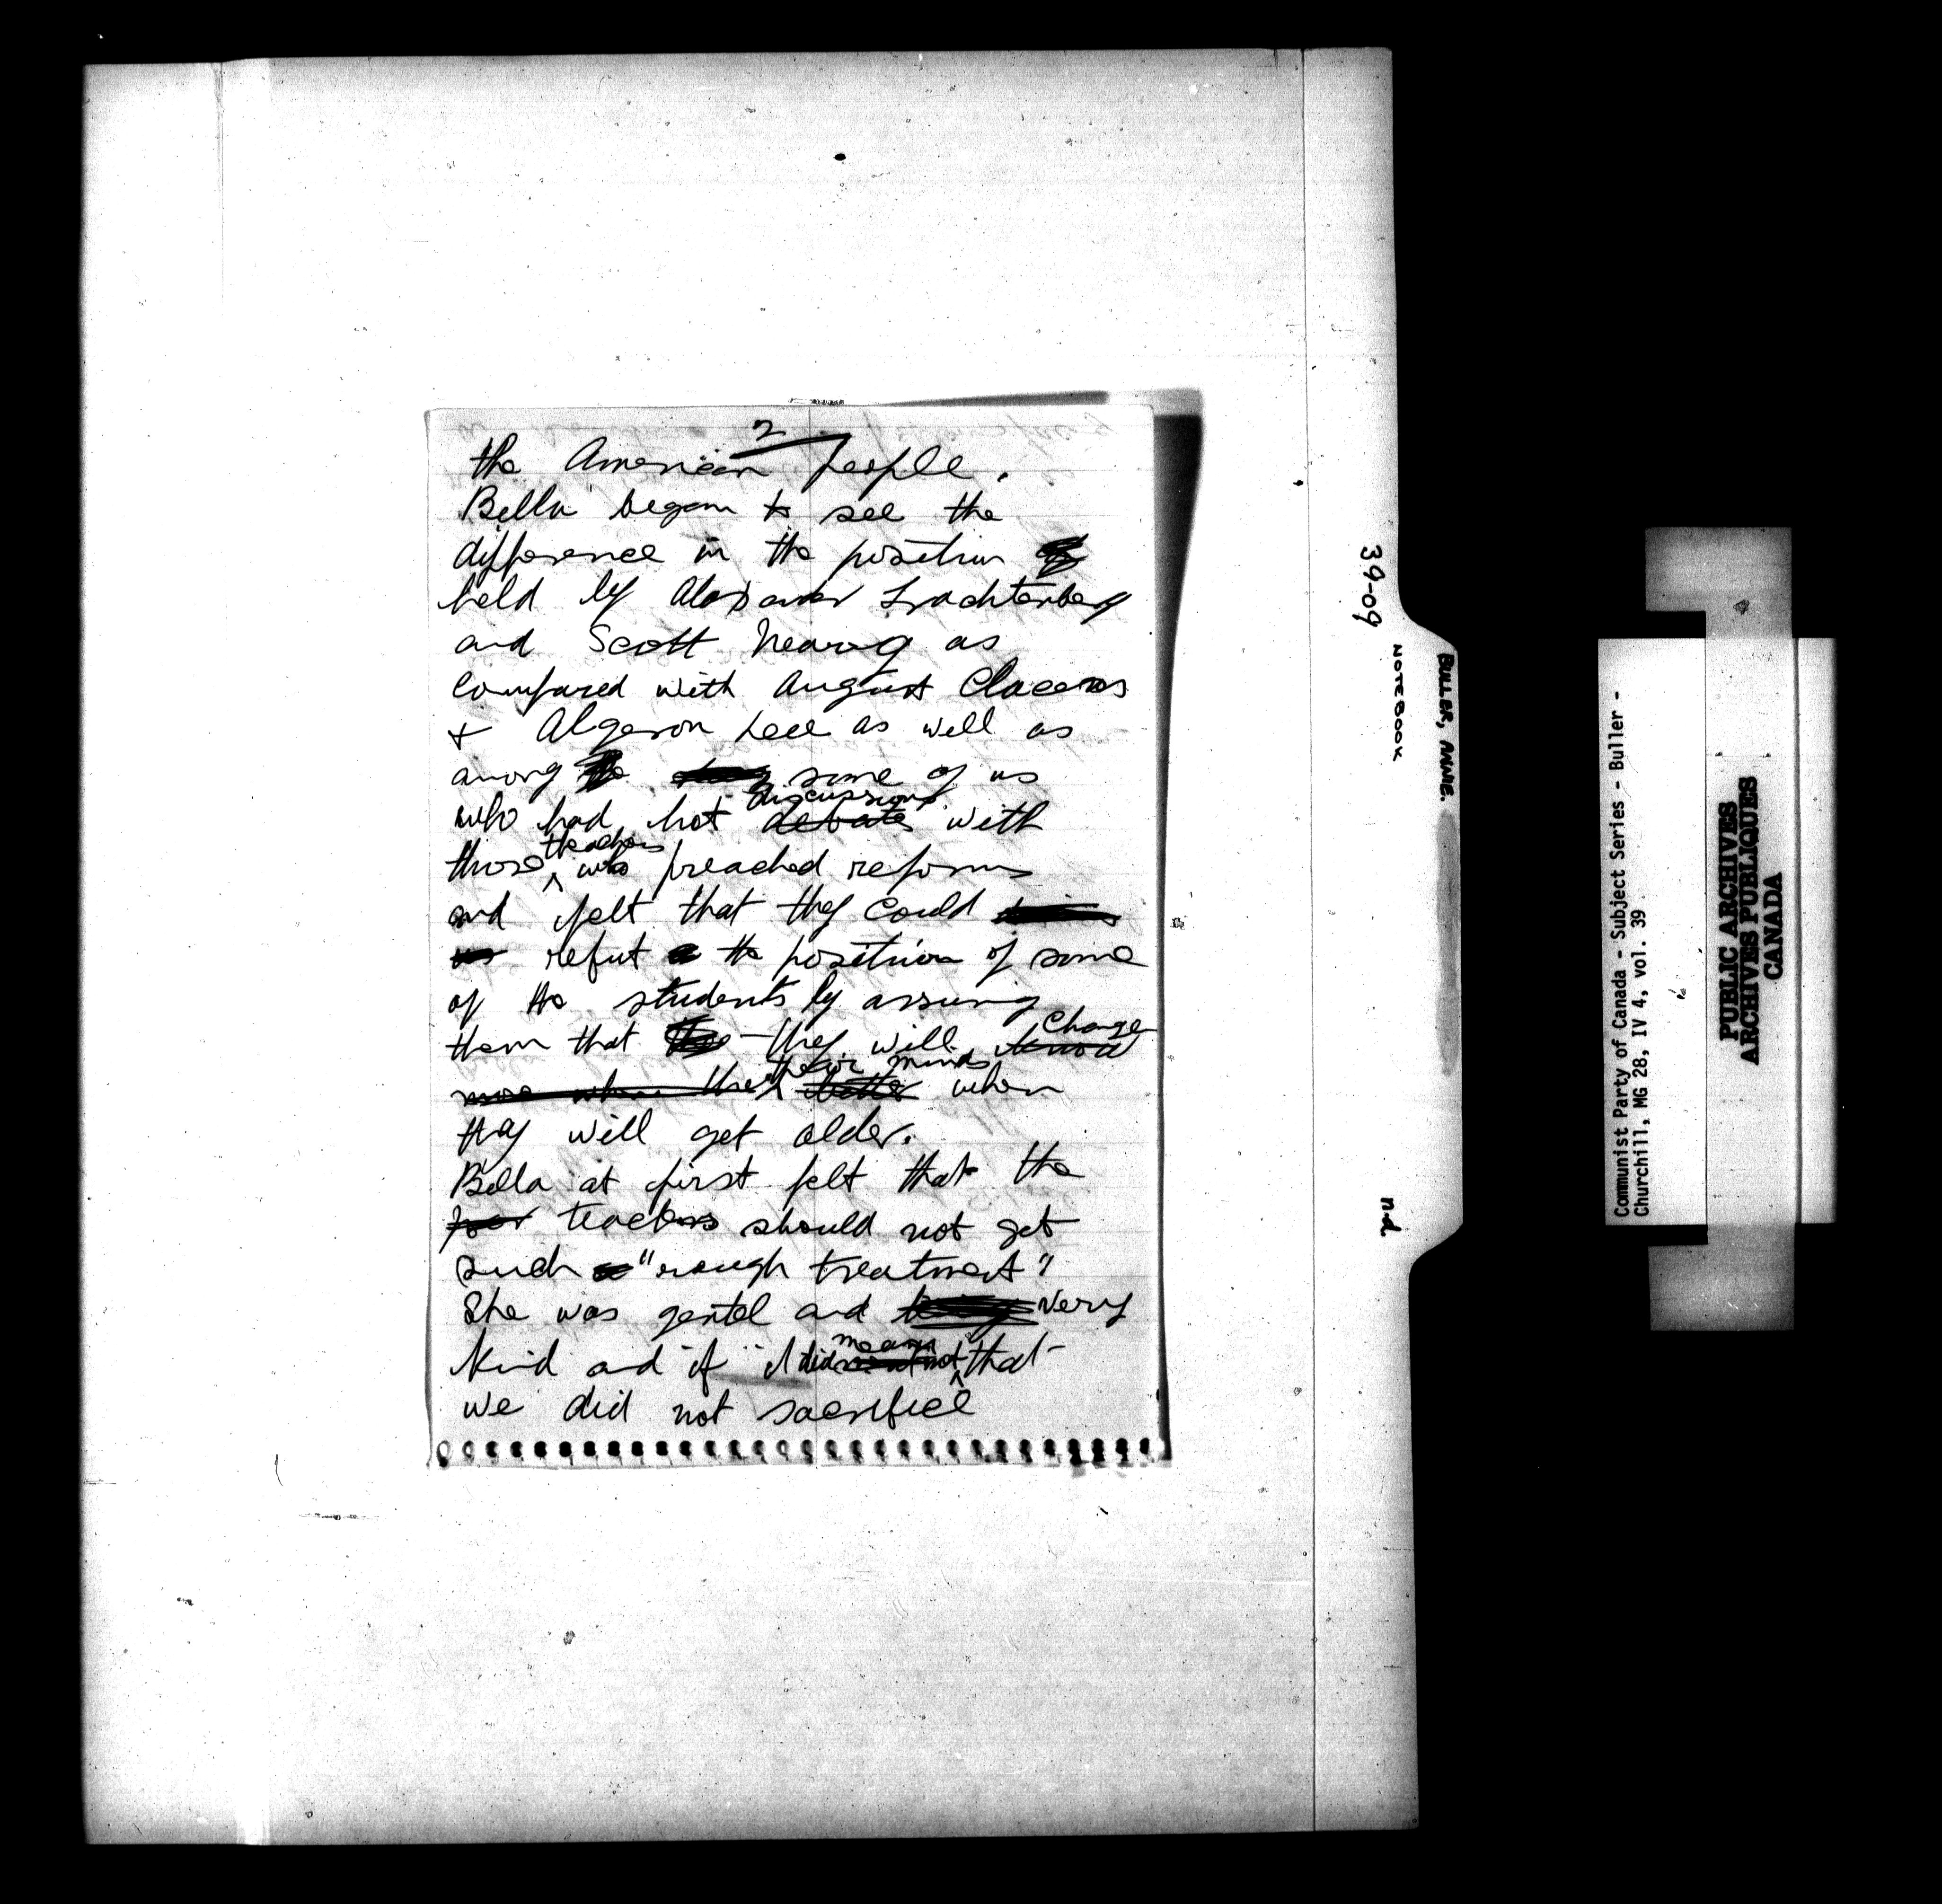 2
the American people.
Bella began to see the
difference in the position of
held by Alexander Trachtenberg
and Scott Nearing as
compared with August Claesens
+ Algeron Lee as well as
among the some of us
discussions
who had hot debates with
teachers
those ^ who preached reforms
and felt that they could
us refut a the position of some
of the students by assuring
change
them that the they will know
their minds
more when they better when
they will get older.
Bella at first felt that the
poor teachers should not get
such a "rough treatment"
She was gentel and very
mean
kind and if it did not ^ that
we did not sacrifice
39-09
NOTEBOOK
BULLER, ANNIE.
n.d.
Communist Party of Canada - Subject Series - Buller -
Churchill, MG 28, IV 4, vol. 39
PUBLIC ARCHIVES
ARCHIVES PUBLIQUES
CANADA